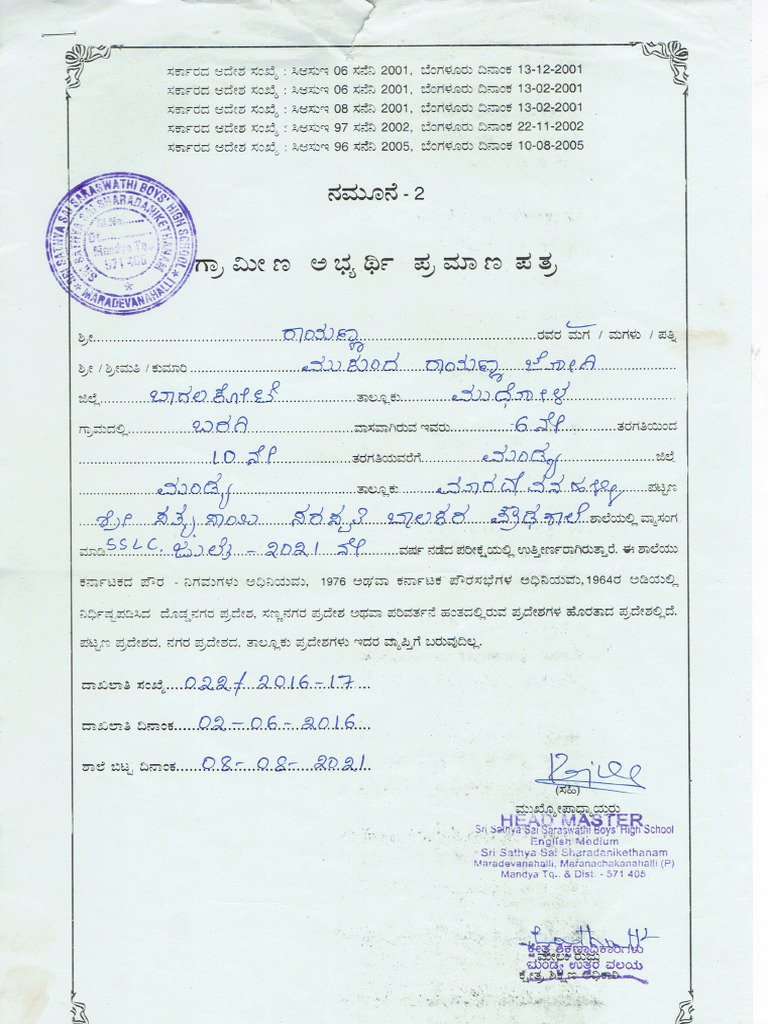 ಸರ್ಕಾರದ ಆದೇಶ ಸಂಖ್ಯೆ : ಸಿಆಸುಇ 06 ಸನೆನಿ 2001, ಬೆಂಗಳೂರು ದಿನಾಂಕ 13-12-2001
ಸರ್ಕಾರದ ಆದೇಶ ಸಂಖ್ಯೆ : ಸಿಆಸುಇ 06 ಸನೆನಿ 2001, ಬೆಂಗಳೂರು ದಿನಾಂಕ 13-02-2001
ಸರ್ಕಾರದ ಆದೇಶ ಸಂಖ್ಯೆ : ಸಿಆಸುಇ 08 ಸನೆನಿ 2001, ಬೆಂಗಳೂರು ದಿನಾಂಕ 13-02-2001
ಸರ್ಕಾರದ ಆದೇಶ ಸಂಖ್ಯೆ : ಸಿಆಸುಇ 97 ಸನೆನಿ 2002, ಬೆಂಗಳೂರು ದಿನಾಂಕ 22-11-2002
ಸರ್ಕಾರದ ಆದೇಶ ಸಂಖ್ಯೆ : ಸಿಆಸುಇ 96 ಸನೆನಿ 2005, ಬೆಂಗಳೂರು ದಿನಾಂಕ 10-08-2005
ನಮೂನೆ - 2
SRI SATHYA SAI SARASWATHI BOYS' HIGH SCHOOL
SATHYA SAI SHARADANIKETHANAM
Mandya Tq.
571 405
MARADEVANAHALLI
ಗ್ರಾಮೀಣ ಅಭ್ಯರ್ಥಿ ಪ್ರಮಾಣ ಪತ್ರ
ಶ್ರೀ ರಾಯಣ್ಣಾ ರವರ ಮಗ / ಮಗಳು / ಪತ್ನಿ
ಶ್ರೀ / ಶ್ರೀಮತಿ / ಕುಮಾರಿ ಮುಕುಂದ ರಾಯಣ್ಣಾ ಜೋಗಿ
ಜಿಲ್ಲೆ ಬಾದಲಕೋಟೆ ತಾಲ್ಲೂಕು ಮುಧೋಳ
ಗ್ರಾಮದಲ್ಲಿ ಬರಗಿ ವಾಸವಾಗಿರುವ ಇವರು 6 ನೇ ತರಗತಿಯಿಂದ
10 ನೇ ತರಗತಿಯವರೆಗೆ ಮಂಡ್ಯ ಜಿಲ್ಲೆ
ಮಂಡ್ಯ ತಾಲ್ಲೂಕು ಮಾರದೇವನಹಳ್ಳಿ ಪಟ್ಟಣ
ಶ್ರೀ ಸತ್ಯಸಾಯಿ ಸರಸ್ವತಿ ಬಾಲಕರ ಪ್ರೌಢಶಾಲೆ ಶಾಲೆಯಲ್ಲಿ ವ್ಯಾಸಂಗ
ಮಾಡಿ SSLC. ಜುಲೈ - 2021 ನೇ ವರ್ಷ ನಡೆದ ಪರೀಕ್ಷೆಯಲ್ಲಿ ಉತ್ತೀರ್ಣರಾಗಿರುತ್ತಾರೆ. ಈ ಶಾಲೆಯು
ಕರ್ನಾಟಕದ ಪೌರ - ನಿಗಮಗಳು ಅಧಿನಿಯಮ, 1976 ಅಥವಾ ಕರ್ನಾಟಕ ಪೌರಸಭೆಗಳ ಅಧಿನಿಯಮ,1964ರ ಅಡಿಯಲ್ಲಿ
ನಿರ್ಧಿಷ್ಟಪಡಿಸಿದ ದೊಡ್ಡನಗರ ಪ್ರದೇಶ, ಸಣ್ಣನಗರ ಪ್ರದೇಶ ಅಥವಾ ಪರಿವರ್ತನೆ ಹಂತದಲ್ಲಿರುವ ಪ್ರದೇಶಗಳ ಹೊರತಾದ ಪ್ರದೇಶಲ್ಲಿದೆ.
ಪಟ್ಟಣ ಪ್ರದೇಶದ, ನಗರ ಪ್ರದೇಶದ, ತಾಲ್ಲೂಕು ಪ್ರದೇಶಗಳು ಇದರ ವ್ಯಾಪ್ತಿಗೆ ಬರುವುದಿಲ್ಲ.
ದಾಖಲಾತಿ ಸಂಖ್ಯೆ 022/2016-17
ದಾಖಲಾತಿ ದಿನಾಂಕ 02-06-2016
ಶಾಲೆ ಬಿಟ್ಟ ದಿನಾಂಕ 08-08-2021
(ಸಹಿ)
ಮುಖ್ಯೋಪಾಧ್ಯಾಯರು
HEAD MASTER
Sri Sathya Sai Saraswathi Boys' High School
English Medium
Sri Sathya Sai Sharadanikethanam
Maradevanahalli, Maranachakanahalli (P)
Mandya Tq., & Dist. - 571 405
ಕ್ಷೇತ್ರ ಶಿಕ್ಷಣಾಧಿಕಾರಿಗಳು
ಮೇಲು ರುಜು
ಮಂಡ್ಯ ಉತ್ತರ ವಲಯ
ಕ್ಷೇತ್ರ ಶಿಕ್ಷಣ ಅಧಿಕಾರಿ